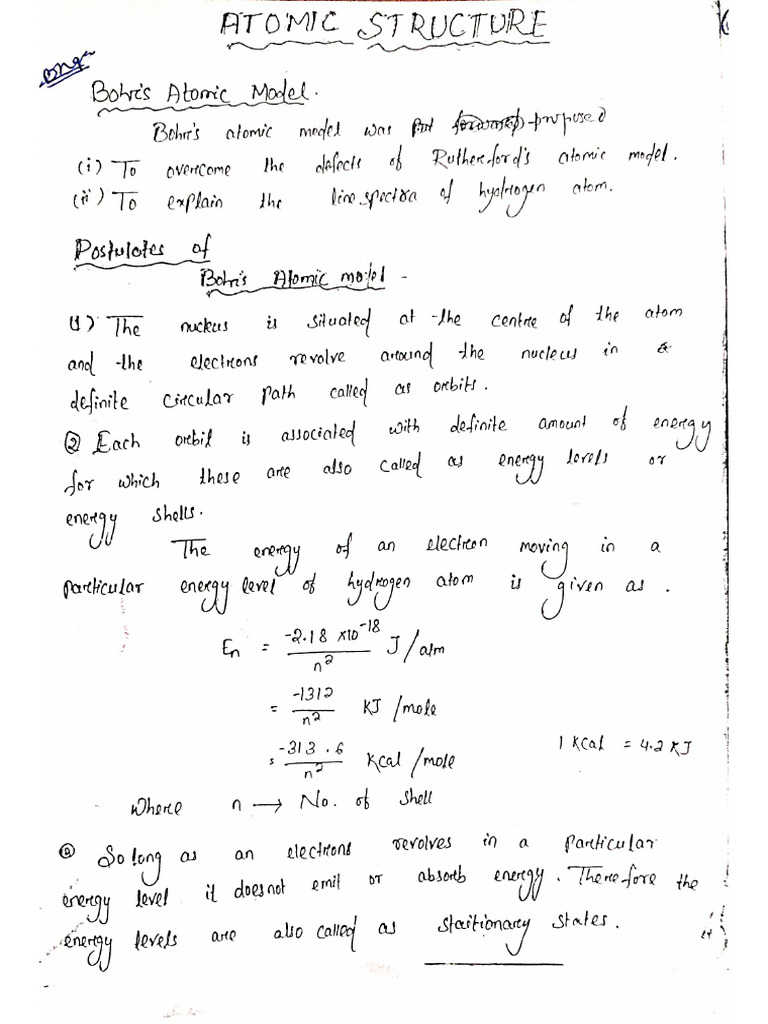 ATOMIC STRUCTURE
Bohr's Atomic Model.
Bohr's atomic model was proposed
(i) To overcome the defects of Rutherford's atomic model.
(ii) To explain the line spectra of hydrogen atom.
Postulates of
Bohr's Atomic model -
(1) The nucleus is situated at the centre of the atom
and the electrons revolve around the nucleus in a
definite circular path called as orbits.
(2) Each orbit is associated with definite amount of energy
for which these are also called as energy levels or
energy shells.
The energy of an electron moving in a
particular energy level of hydrogen atom is given as.
En = -2.18 × 10^-18 / n² J/atm
= -1312 / n² KJ /mole
= -313.6 / n² Kcal /mole 1 Kcal = 4.2 KJ
where n → No. of shell
So long as an electrons revolves in a particular
energy level it doesnot emit or absorb energy. Therefore the
energy levels are also called as staitionary states.